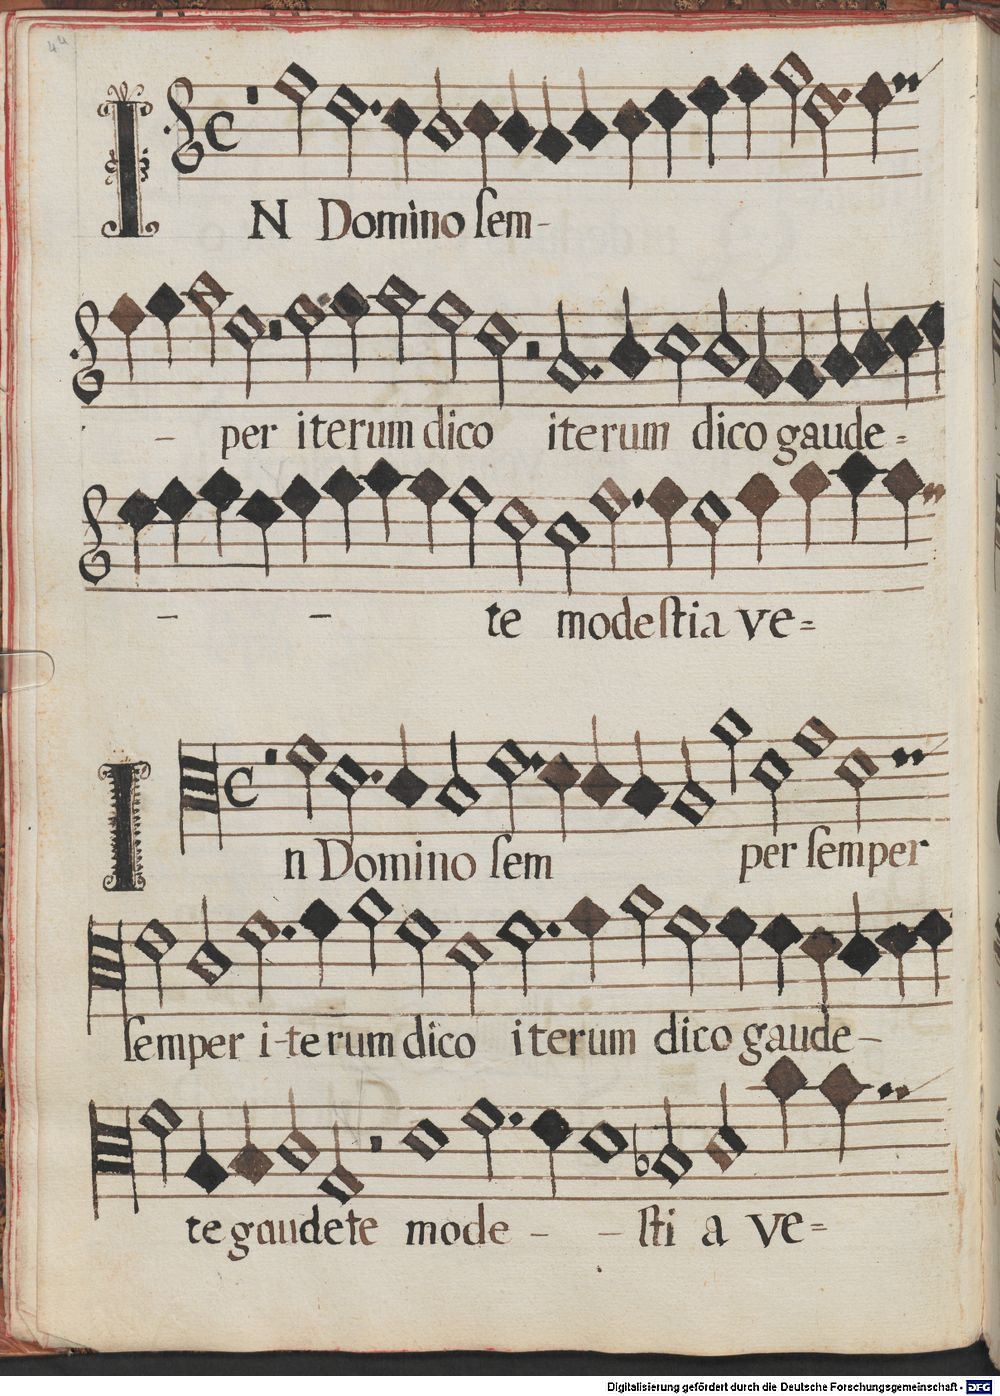 44
IN Domino sem-
- per iterum dico iterum dico gaude=
- - te modestia ve=
In Domino sem per semper
semper i-terum dico iterum dico gaude-
te gaudete mode - - sti a ve=
Digitalisierung gefördert durch die Deutsche Forschungsgemeinschaft - DFG